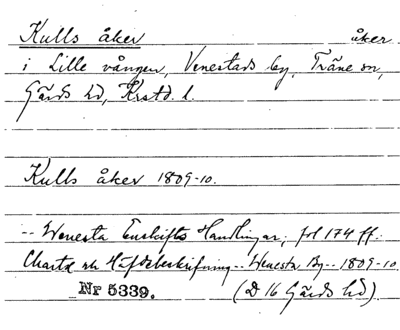 Kulls åker åker
i Lille vången, Venestads by, Träne sn,
Gärds hd, Krstd. l.
Kulls åker 1809-10.
-- Wenesta Enskiftes Handlingar, fol 174 ff.
Charta och Häfdebeskrifning -- Wenesta By -- 1809-10
Nr 5339. (D 16 Gärds hd)